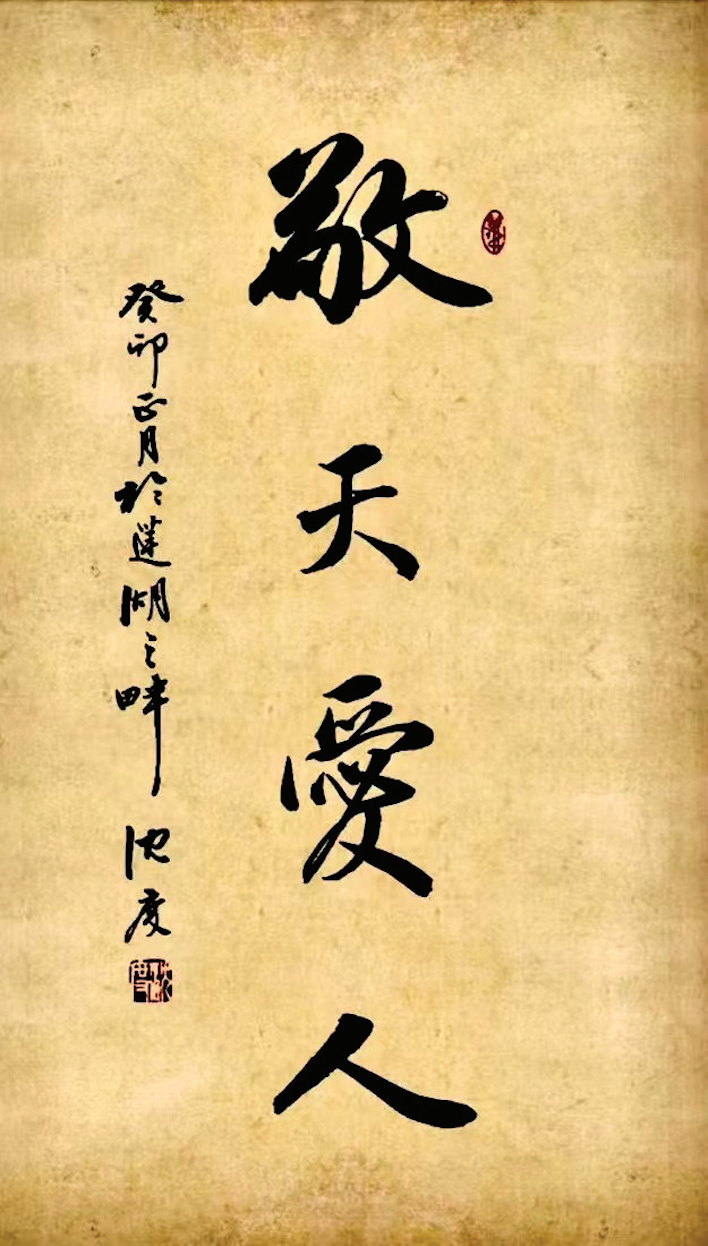 敬天愛人
癸卯正月於蓮湖之畔
沈度